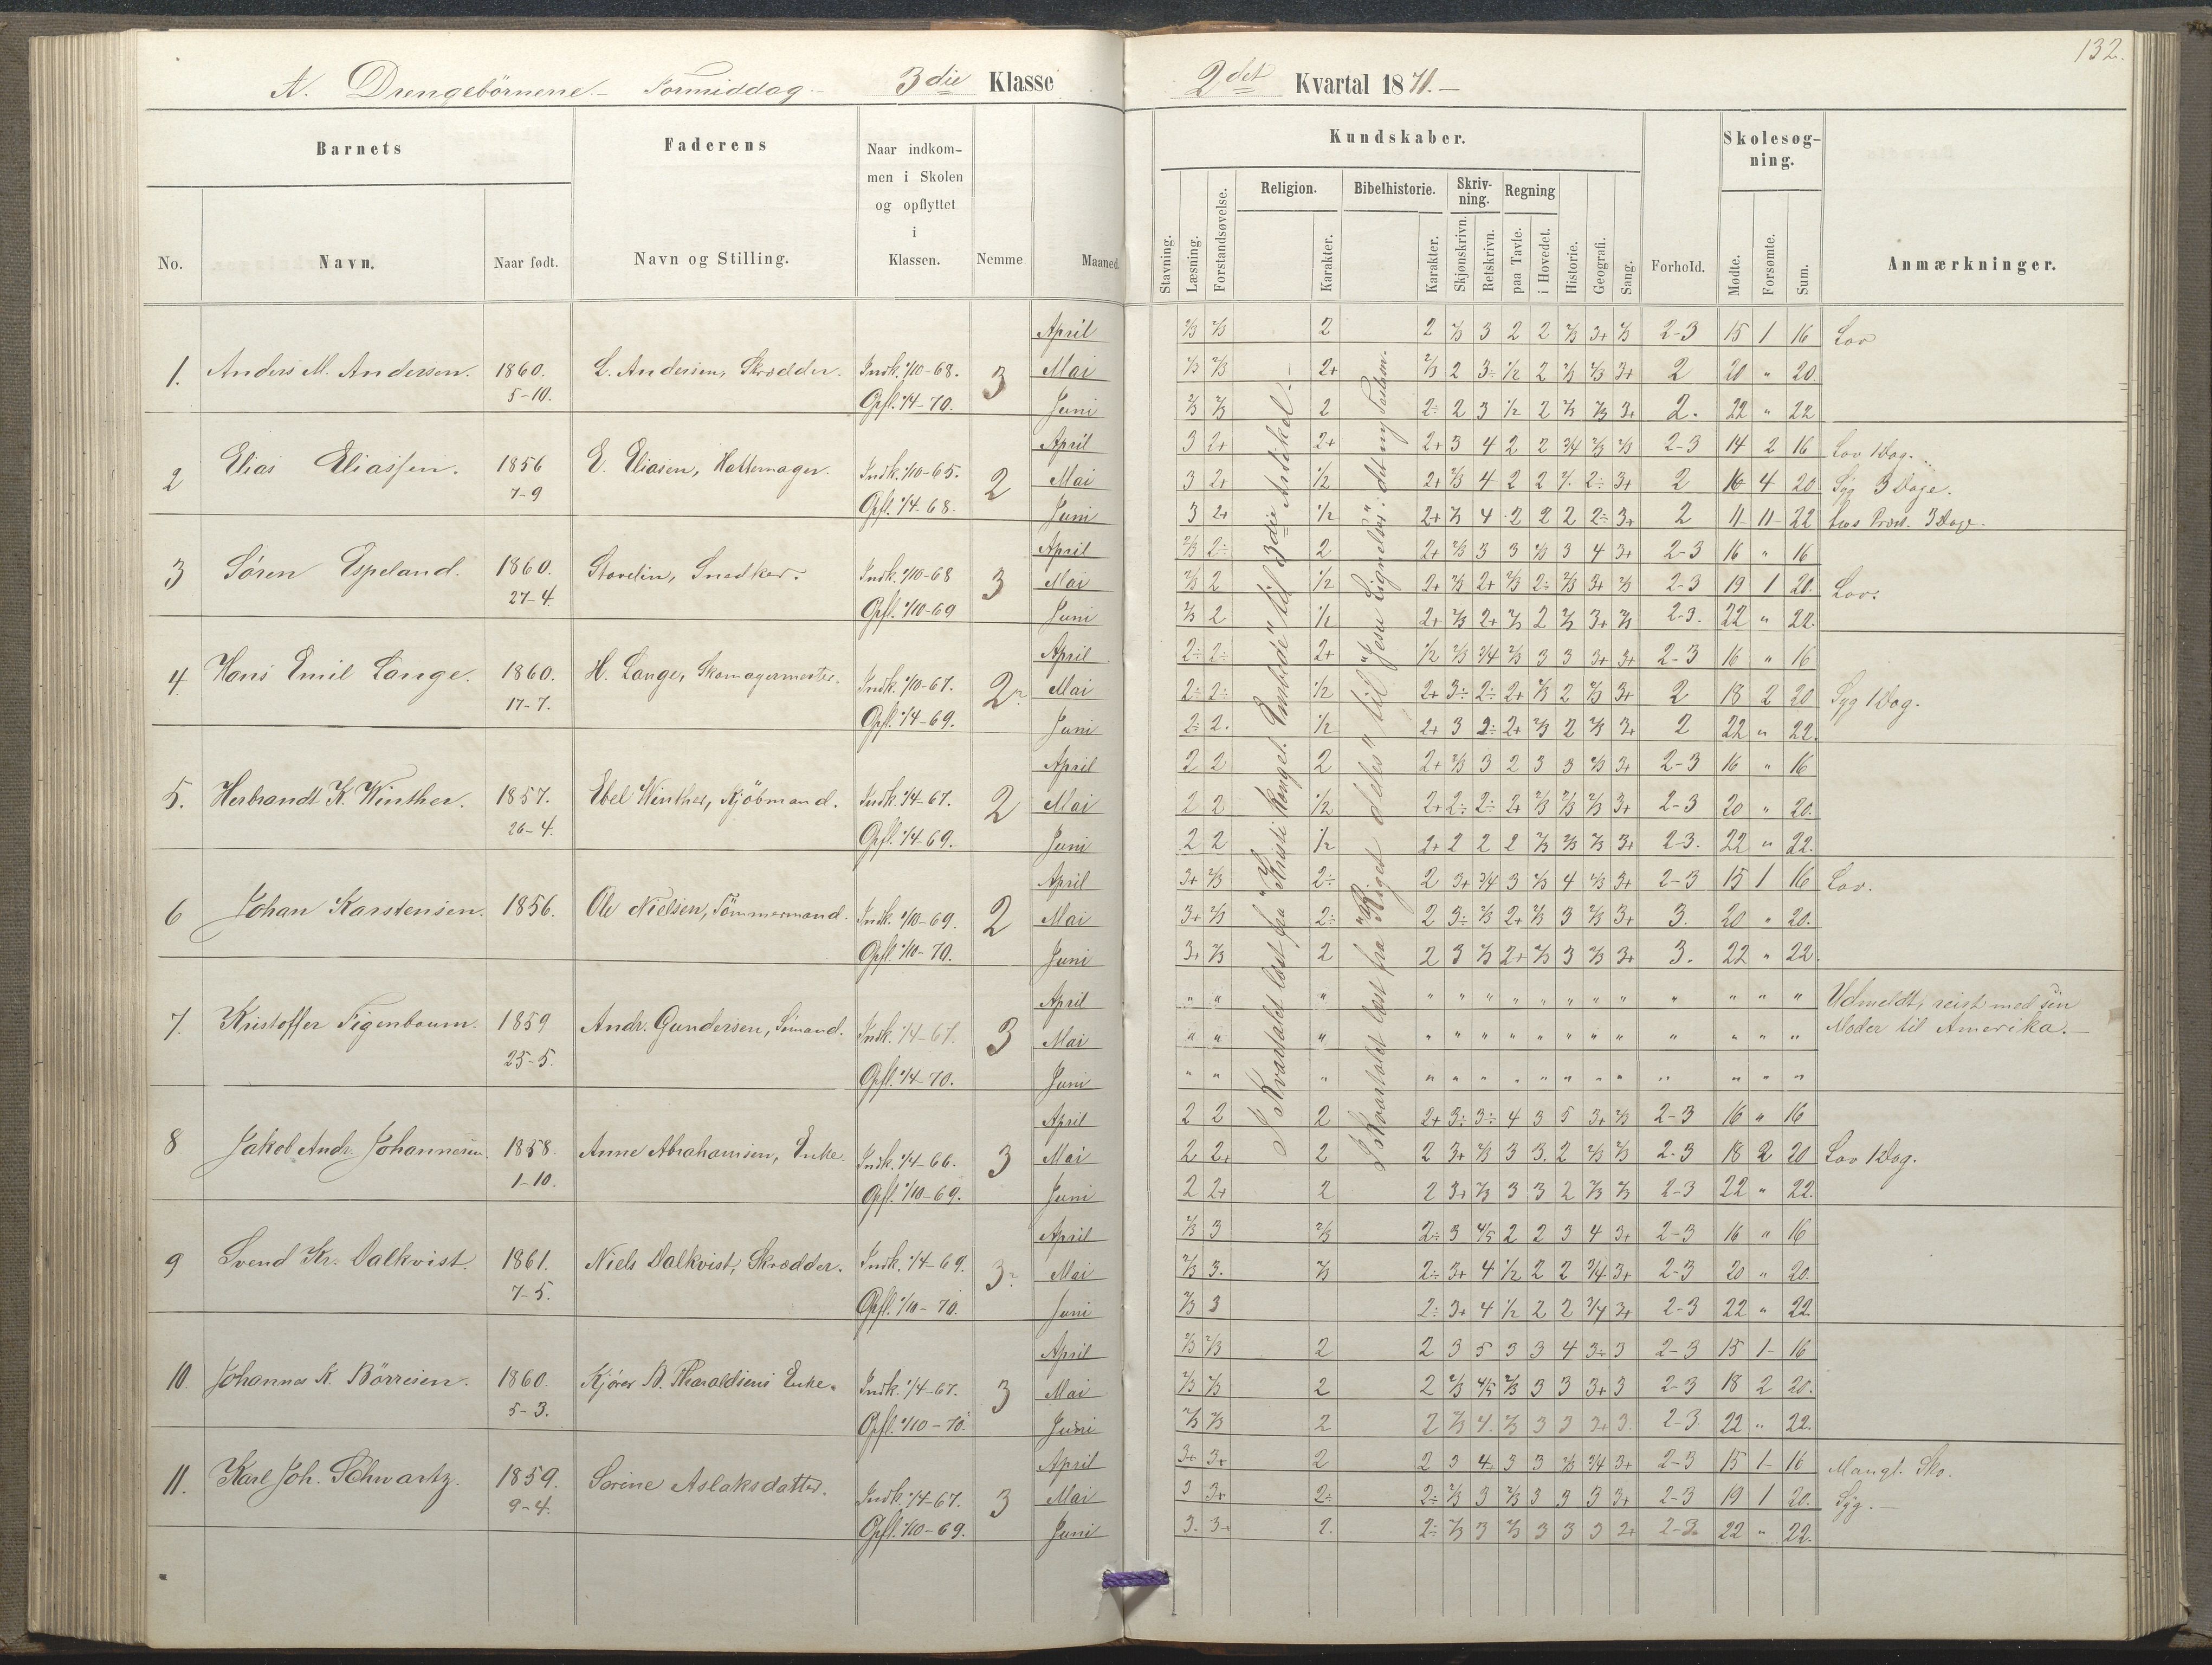 132.
A. Drengebørnene - Formiddag - 3die Klasse
2det Kvartal 1871.-
Barnets
Faderens
Naar indkom-
men i Skolen
og opflyttet
i
Klassen.
No.
Navn.
Naar født.
Navn og Stilling.
Nemme
Maaned.
Kundskaber.
Skolesøg-
ning.
Religion.
Bibelhistorie.
Skriv-
ning.
Regning
Stavning.
Læsning.
Forstandsøvelse.
Karakter.
Karakter.
Skjønskrivn.
Retskrivn.
paa Tavle.
i Hovedet.
Historie.
Geografi.
Sang.
Forhold.
Mødte.
Forsømte.
Sum.
Anmærkninger.
I Kvartalet læst fra "Kristi kongel. Embede" til 3die Artikel.
I Kvartalet læst fra "Riget deles" til "Jesu Lignelser": det ny Testam.
1. Anders M. Andersen. 1860. 5-10. L. Andersen, Skrædder. Indk. 1/10-68. Opfl. 1/4-70. 3
April 2/3 2/3 2 2 2/3 3 2 2 2/3 3+ 2/3 2-3 15 1 16 Lov
Mai 2/3 2/3 2+ 2/3 2 3÷ 1/2 2 2/3 2/3 3+ 2 20 " 20.
Juni 2/3 2/3 2 2÷ 2 3 1/2 2 2/3 2/3 3+ 2. 22 " 22
2 Elias Eliassen. 1856 7-9 E. Eliasen, Hattemager. Indk. 1/10-65. Opfl. 1/4-68. 2
April 3 2+ 2+ 2+ 3 4 2 2 3/4 2/3 2/3 2-3 14 2 16 Lov 1 Dag.
Mai 3 2+ 1/2 2+ 2/3 4 2 2 2÷ 3+ 2 16 4 20 Syg 3 Dage.
Juni 3 2+ 1/2 2+ 2/3 4 2 2 2 2÷ 3+ 2 11- 11- 22 hos Præst. 3 Dage.
3 Søren Espeland. 1860. 27-4. Stavelin, Snedker. Indk. 1/10-68 Opfl. 1/10-69 3
April 2/3 2÷ 2 2+ 2/3 3 3 2/3 3 4 3+ 2-3 16 " 16
Mai 2/3 2 1/2 2+ 2/3 2+ 2/3 2÷ 2/3 3+ 2/3 2-3 19 1 20. Lov.
Juni 2/3 2 1/2 2+ 2/3 2+ 2/3 2 2/3 3+ 2/3 2-3. 22 " 22.
4 Hans Emil Lange. 1860. 17-7. H. Lange, Skomagermester. Indk. 1/10-67. Opfl. 1/4-69. 2÷
April 2÷ 2÷ 2+ 1/2 2/3 3/4 2/3 3 3 3+ 3+ 2-3 16 " 16
Mai 2÷ 2÷ 1/2 2+ 3÷ 2÷ 2+ 2/3 2 2/3 3+ 2 18 2 20 Syg 1 Dag.
Juni 2÷ 2. 1/2 2+ 3 2÷ 2+ 2/3 2 2/3 3+ 2 22 " 22.
5. Herbrandt K. Winther. 1857. 26-4. Ebel Winther, Kjöbmand. Indk. 1/4-67. Opfl. 1/4-69. 2
April 2 2 2 2+ 2/3 3 2 3 3 2/3 3+ 2-3 16 " 16
Mai 2 2 1/2 2+ 2÷ 2÷ 2+ 2/3 2/3 2/3 3+ 2-3 20 " 20.
Juni 2 2 1/2 2+ 2 2 2 2/3 2/3 2/3 3+ 2-3. 22 " 22.
6 Johan Karstensen. 1856. Ole Nielsen, Tømmermand. Indk. 1/10-69. Opfl. 1/10-70. 2
April 3+ 2/3 2÷ 2 3+ 3/4 3 2/3 4 2/3 3+ 2-3 15 1 16 Lov.
Mai 3+ 2/3 2÷ 2 3÷ 2/3 2+ 2/3 3 2/3 3+ 3. 20 " 20.
Juni 3+ 2/3 2 2 3 2/3 2+ 2/3 3 2/3 3+ 3. 22 " 22.
7. Kristoffer Figenboum. 1859 25-5. Andr. Gundersen, Sömand. Indk. 1/4-67. Opfl. 1/4-70. 3
April " " " " " " " " " " " " " " " Udmeldt, reist med sin
Mai " " " " " " " " " " " " " " " Moder til Amerika.-
Juni " " " " " " " " " " " " " " "
8 Jakob Andr. Johannesen. 1858. 1-10. Anne Abrahamsen, Enke. Indk. 1/4-66. Opfl. 1/10-69. 3
April 2 2 2 2+ 3÷ 3÷ 4 3 5 3+ 2/3 2-3 16 " 16
Mai 2 2+ 2 2 3+ 2/3 3 3. 2 2/3 2/3 2-3 18 2 20 Lov 1 Dag.
Juni 2 2+ 2 2 3+ 2/3 3 3 2 2/3 2/3 2-3 22 " 22.
9 Svend Kr. Dalkvist. 1861. 7-5. Niels Dalkvist, Skrædder. Indk. 1/4-69. Opfl. 1/10-70. 3÷
April 2/3 3 2/3 2÷ 3 4/5 2 2 3 4 3+ 2-3 16 " 16
Mai 2/3 3. 2/3 2÷ 3+ 4 1/2 2 2 3/4 3+ 2-3 20 " 20.
Juni 2/3 3 2÷ 3+ 4 1/2 2 2 3/4 3+ 2-3 22 " 22.
10. Johannes K. Börresen. 1860. 5-3. Kjören B. Tharaldsens Enke. Indk. 1/4-67. Opfl. 1/10-70. 3
April 2/3 2/3 2 2 3 5 3 3 4 3÷ 3 2-3 15 1- 16
Mai 2/3 2/3 2 2 2/3 4/5 2/3 3 3 3+ 3 2-3 18 2 20.
Juni 2/3 2/3 2 2 2/3 4. 2/3 3 3 3+ 3. 2-3 22 " 22.
11. Karl Joh. Schwartz. 1859. 9-4. Sørine Aslaksdatter. Indk. 1/4-67. Opfl. 1/10-69. 3
April 3+ 3+ 2 2 3 4+ 3 3 2/3 3/4 3+ 2-3 15 1- 16 Mangl. Sko.
Mai 3 3+ 2÷ 2÷ 2/3 3 2/3 3 3 3 3+ 2-3 19 1 20. Syg.-
Juni 3. 3+ 2. 2÷ 2/3 3 2/3 3 3 3 2+ 2-3 22 " 22.